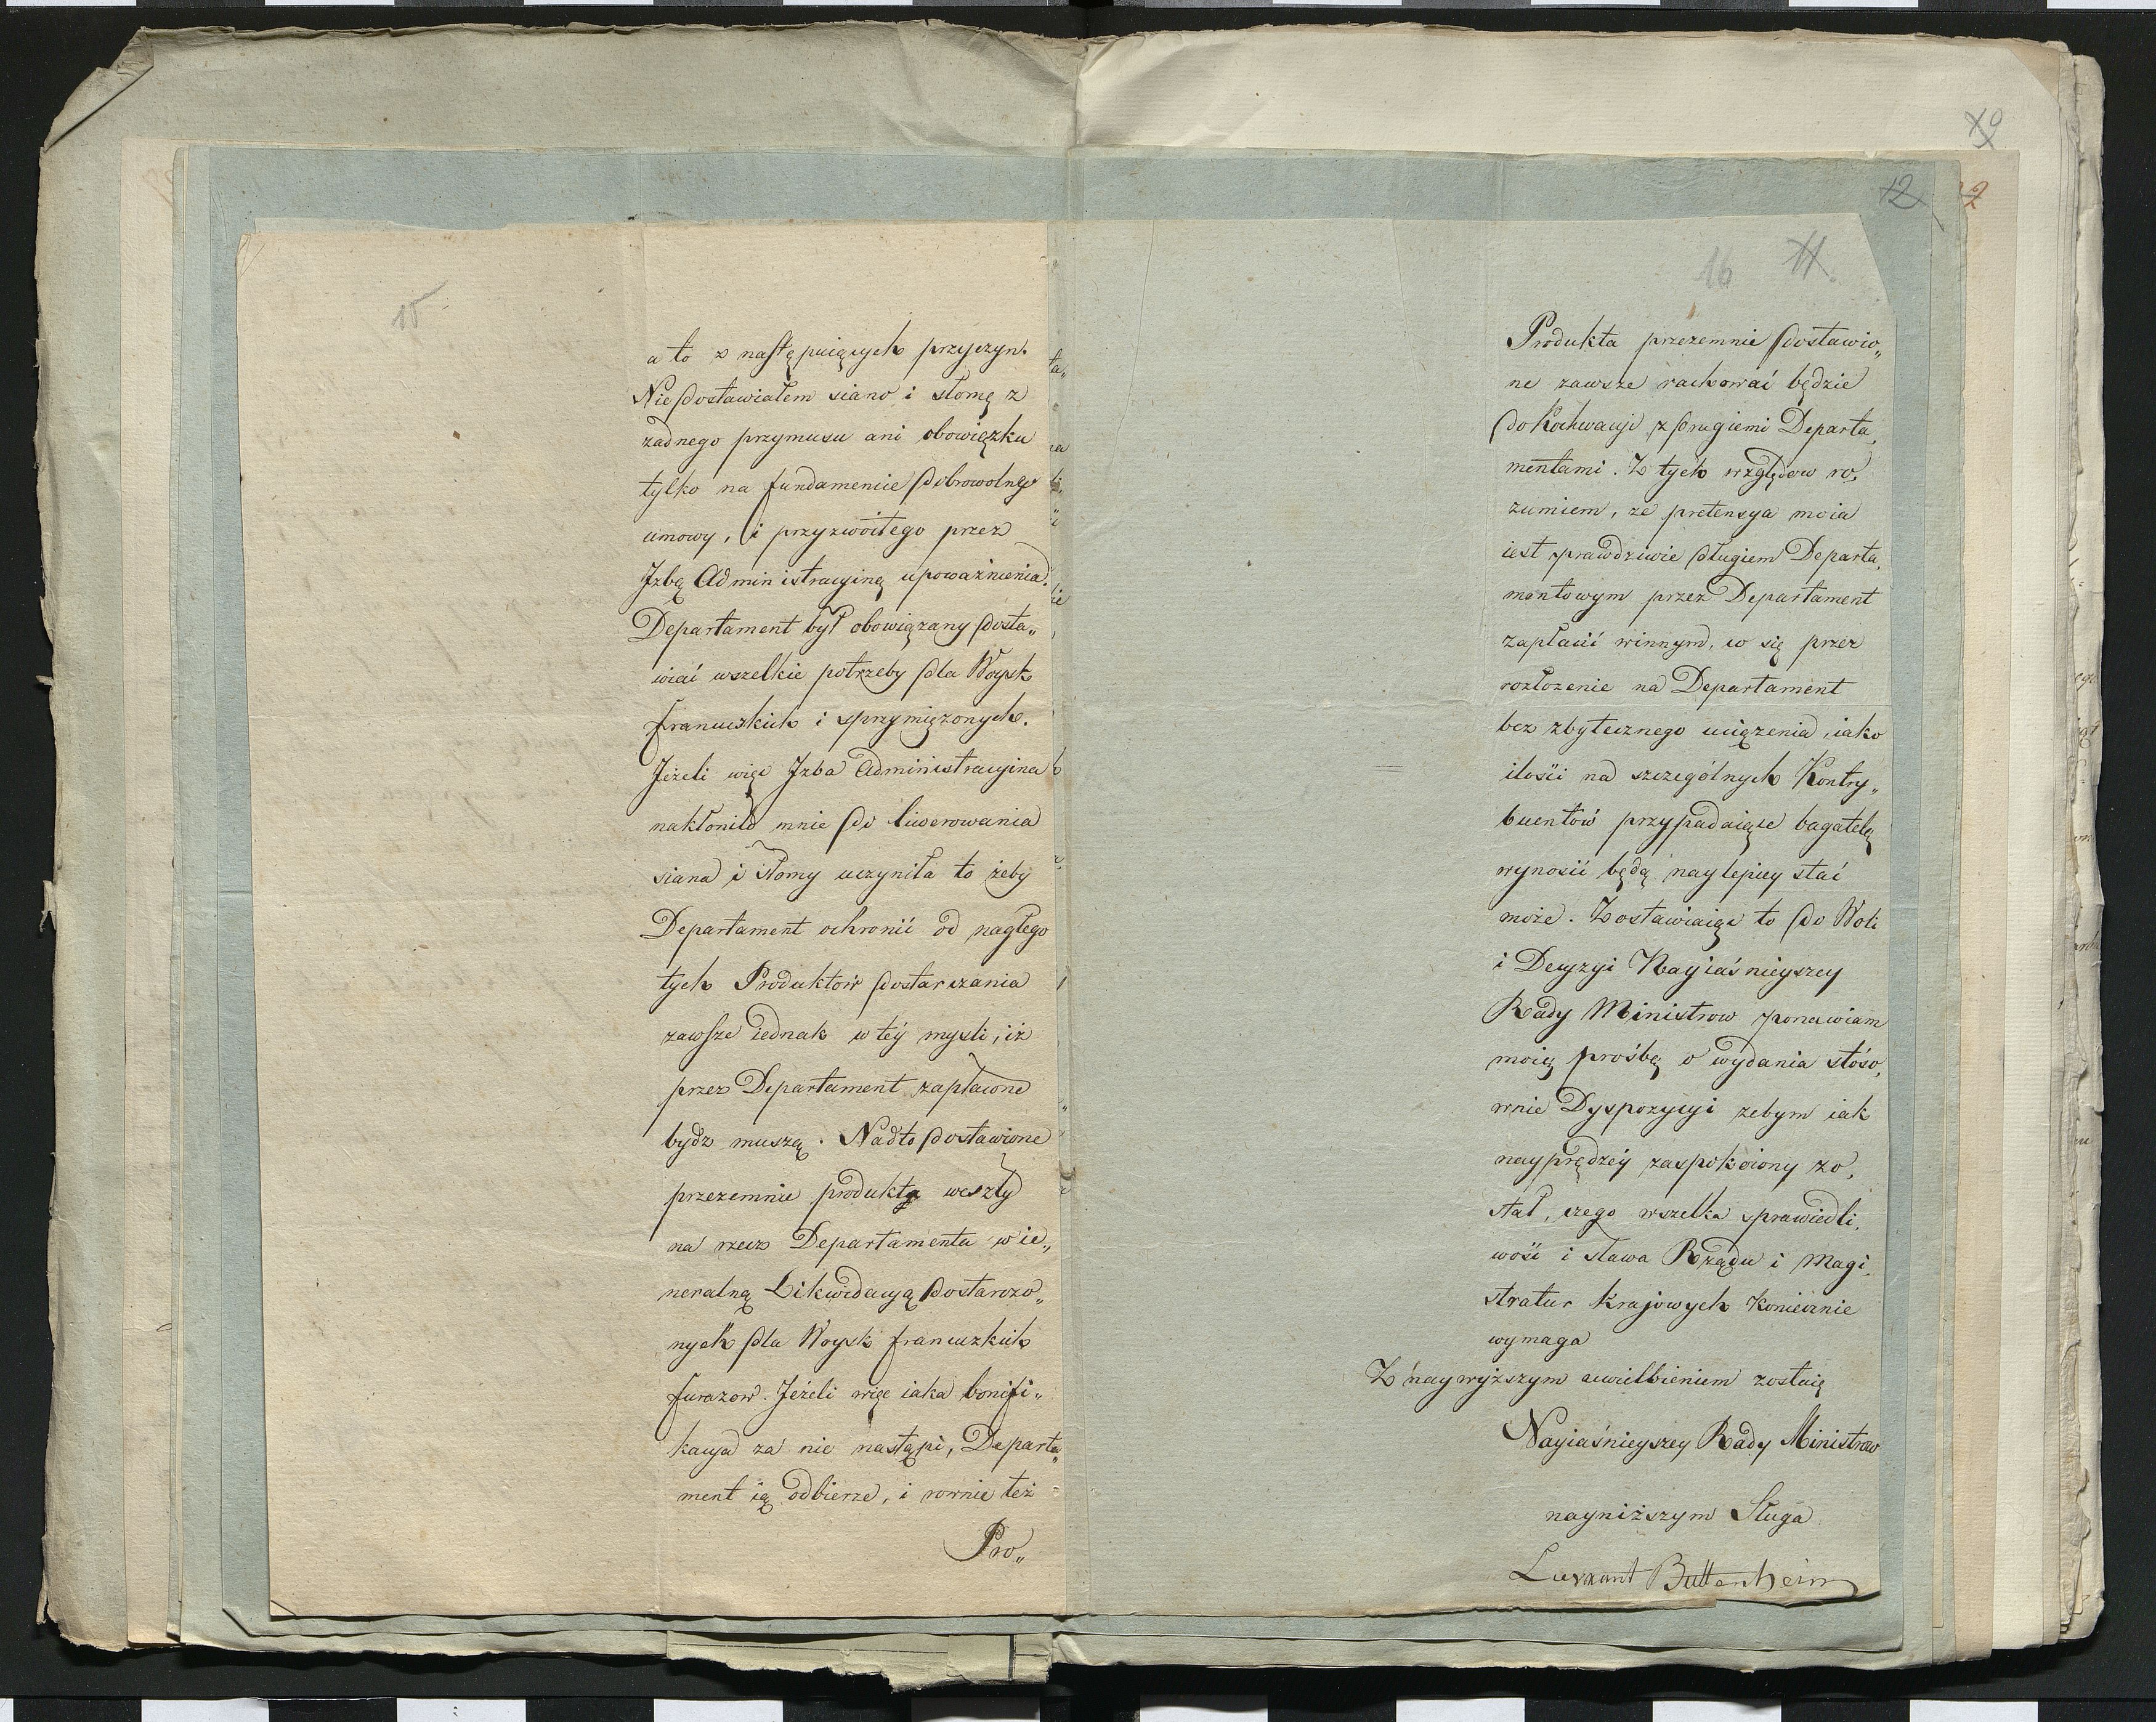 15
a to z następuiących przyczyn.
Nie dostawiałem siano i słomę z
żadnego przymusu ani obowiązku
tylko na fundamencie dobrowolney
umowy, i przyzwoitego przez
Jzbę Administracyiną upoważnienia.
Departament był obowiązany dosta„
wiać wszelkie potrzeby dla Woysk
francuzkich i sprzymiężonych.
Jeżeli więc Jzba Administracyina
nakłoniła mnie do liwerowania
siana i słomy uczyniła to żeby
Departament ochronić od nagłego
tych Produktów dostarczania
zawsze iednak w téy mysli, iż
przez Departament zapłacone
bydz muszą. Nadto dostawione
przezemnie produkta weszły
na rzecz Departamentu w ie„
neralną Likwidacyą dostarczo„
nych dla Woysk francuzkich
furazow. Jeżeli więc iaka bonifi„
kacya za nie nastąpi, Departa„
ment ią odbierze, i rownie też
Pro„
12
12
16 11.
Produkta przezemnie dostawio„
ne zawsze rachować będzie
do Koekwacyi z drugiemi Departa„
mentami. Z tych względow ro„
zumiem, ze pretensya moia
iest prawdziwie długiem Departa„
mentowym przez Departament
zapłacić winnym, co się przez
rozłozenie na Departament
bez zbytecznego uciązenia, iako
ilości na szczególnych Kontry„
buentów przypadaiące bagatelę
wynosić będą naylepiey stać
może. Zostawiaiąc to do Woli
i Decyzyi Nayiaśnieyszey
Rady Ministrow ponawiam
moię prośbę o wydania stóso„
wnie Dyspozycyi zebym iak
nayprędzéy zaspokoiony zo„
stał, czego wszelka sprawiedli„
wość i sława Rządu i Magi„
stratur Krajowych koniecznie
wymaga
Z naywyższym uwielbieniem zostaię
Nayiaśnieyszey Rady Ministrow
nayniższym Sługa
Buttenheim